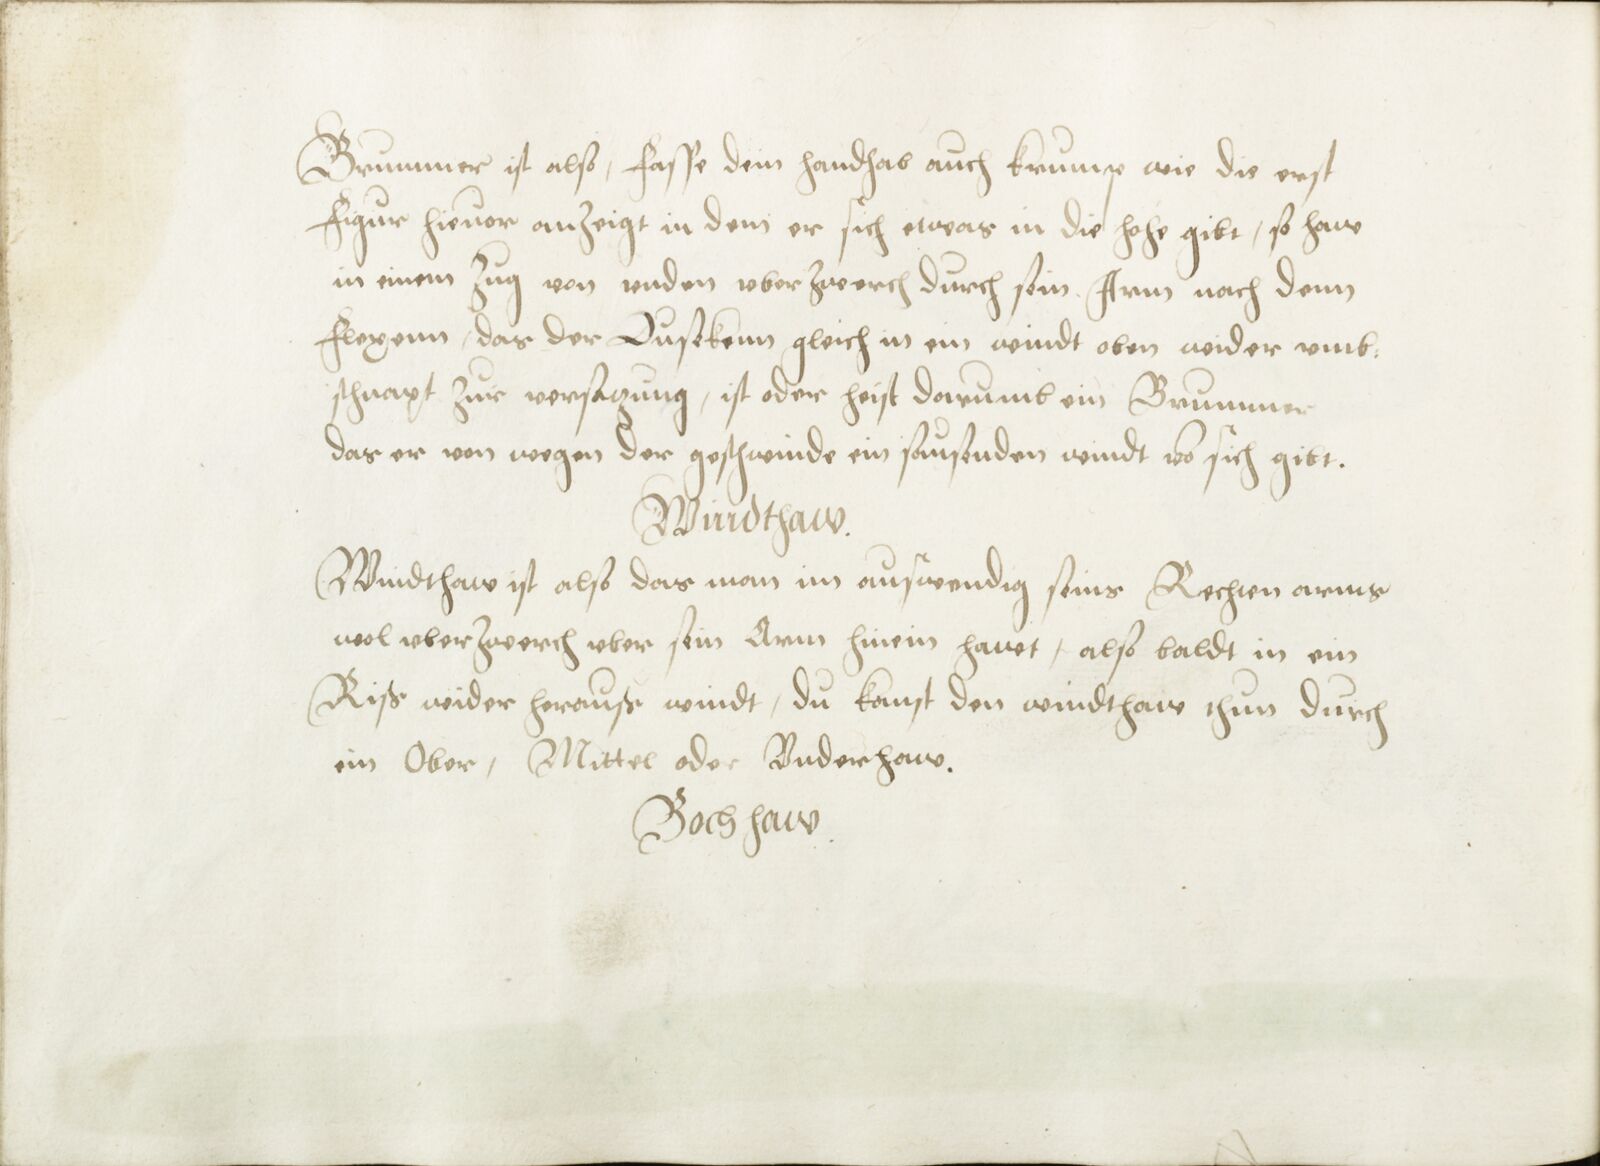 Brummer ist also, Fasse dein handhab auch krump wie die erst
Figur hieuor anzeigt in dem er sich etwas in die hohe gibt, so haw
in einem Zug von unden uberzwerch durch sein Arm nach denn
Flexenn, das der Dusekenn gleich in ein windt oben wider umb,
schnapt zur versatzung, ist oder heist darumb ein Brummer
das er von wegen der geschwinde ein sausenden windt vo sich gibt.
Windthaw.
Windthaw ist also das man im auswendig seins Rechten arms
wol uberzwerch uber sein Arm hinein hawet, also baldt in ein
Riß wider herauß windt, du kanst den windthaw thun durch
ein Ober, Mittel oder Vnderhaw.
Bochhaw.